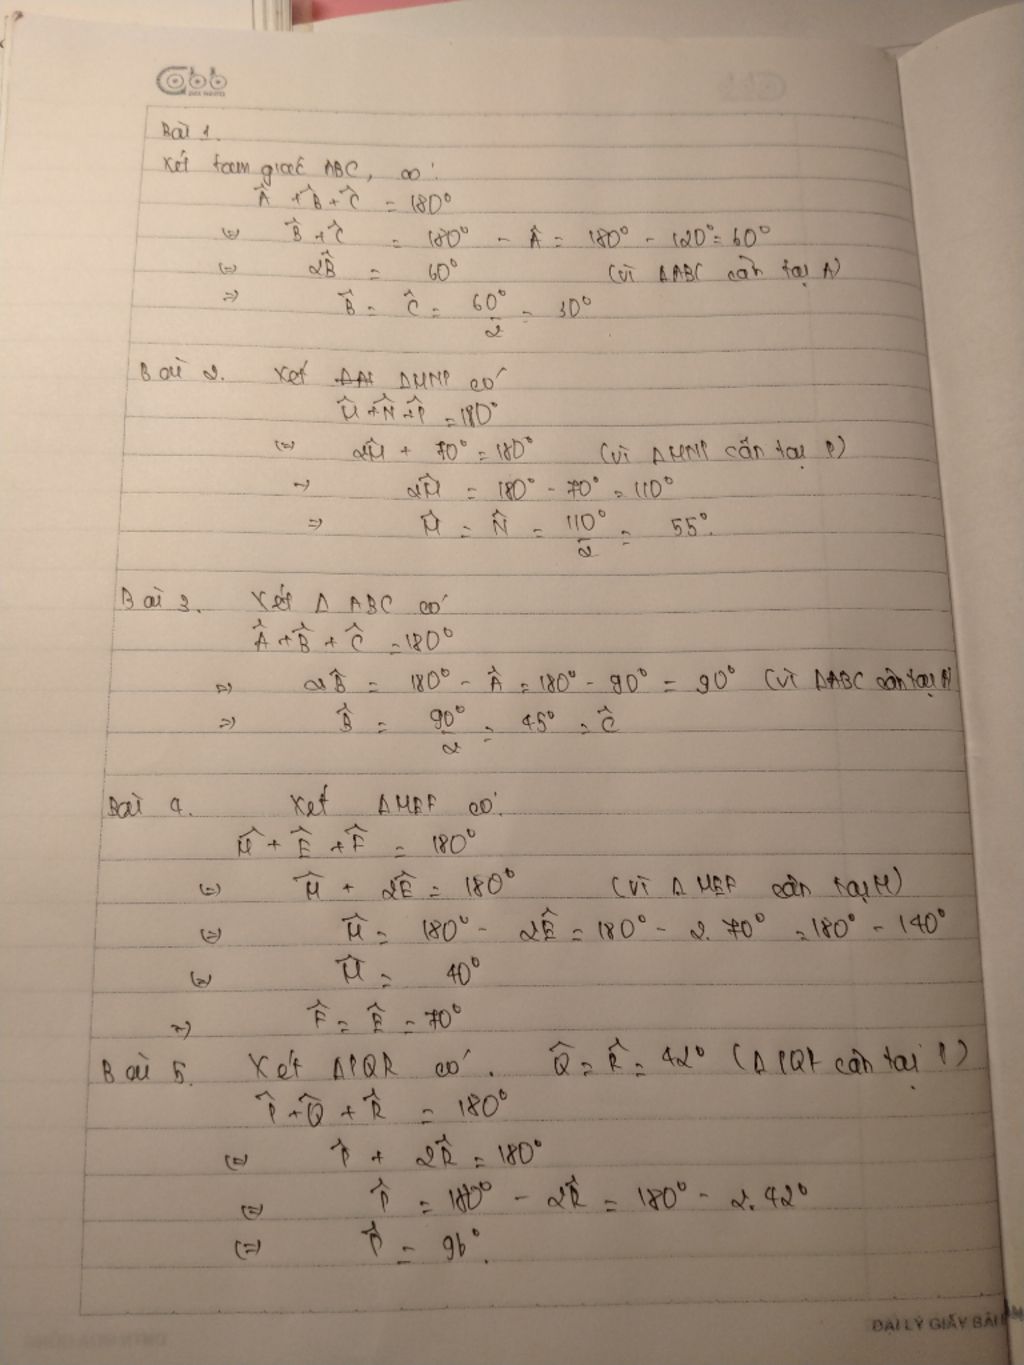 Cabb
Bài 1.
Xét tam giác ABC, có:
Â + B̂ + Ĉ = 180°
(=) B̂ + Ĉ = 180° - Â = 180° - 120° = 60°
(=) 2B̂ = 60° (vì ΔABC cân tại A)
=) B̂ = Ĉ = 60°/2 = 30°
Bài 2. Xét ΔMNP có
M̂ + N̂ + P̂ = 180°
(=) 2M̂ + 70° = 180° (vì ΔMNP cân tại P)
=) 2M̂ = 180° - 70° = 110°
=) M̂ = N̂ = 110°/2 = 55°.
Bài 3. Xét Δ ABC có
Â + B̂ + Ĉ = 180°
=) 2B̂ = 180° - Â = 180° - 90° = 90° (vì ΔABC cân tại A)
=) B̂ = 90°/2 = 45° = Ĉ
Bài 4. Xét ΔMEF có:
M̂ + Ê + F̂ = 180°
(=) M̂ + 2Ê = 180° (vì Δ MEF cân tại M)
(=) M̂ = 180° - 2Ê = 180° - 2.70° = 180° - 140°
(=) M̂ = 40°
=) F̂ = Ê = 70°
Bài 5. Xét ΔPQR có. Q̂ = R̂ = 42° (ΔPQR cân tại P)
P̂ + Q̂ + R̂ = 180°
(=) P̂ + 2R̂ = 180°
(=) P̂ = 180° - 2R̂ = 180° - 2.42°
(=) P̂ = 96°.
ĐẠI LÝ GIẤY BÃI